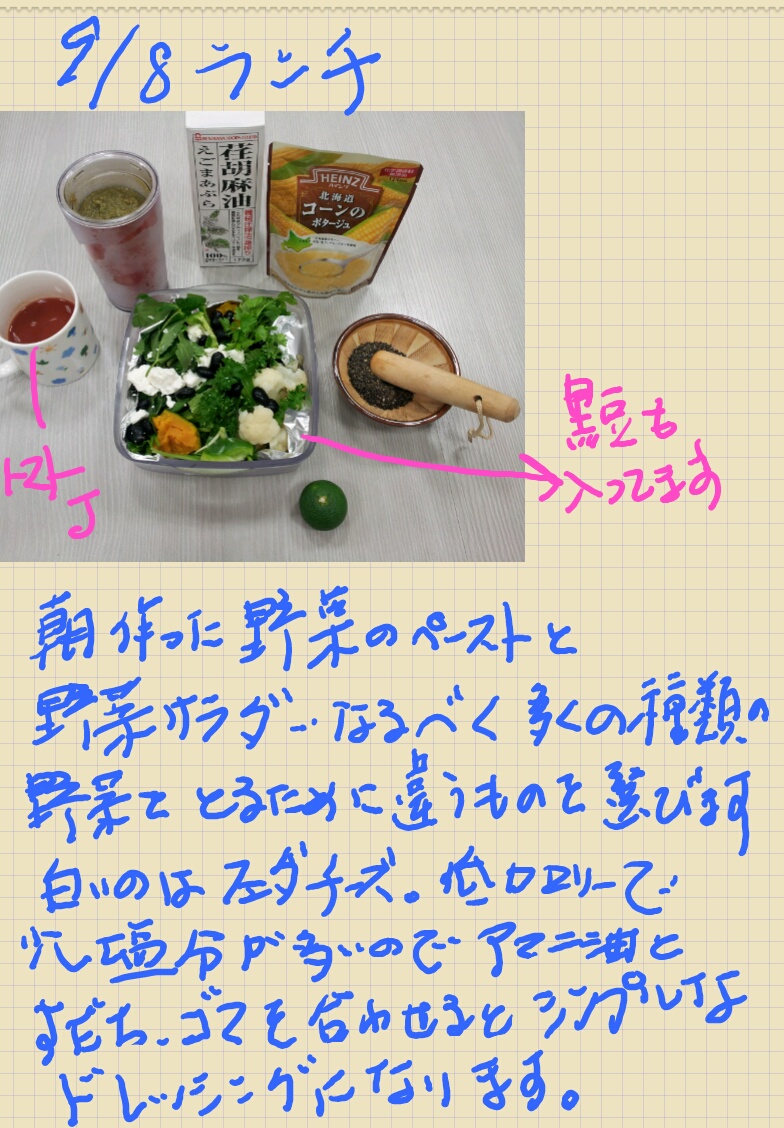 9/8 ランチ
荏胡麻油
えごまあぶら
100%
HEINZ
ハインツ
北海道
コーンの
ポタージュ
トマトJ
黒豆も
入ってます
朝作った野菜のペーストと
野菜サラダ…なるべく多くの種類の
野菜をとるために違うものを選びます
白いのはフェタチーズ。低カロリーで
少し塩分が多いのでアマニ油と
すだち、ゴマを合わせるとシンプルな
ドレッシングになります。